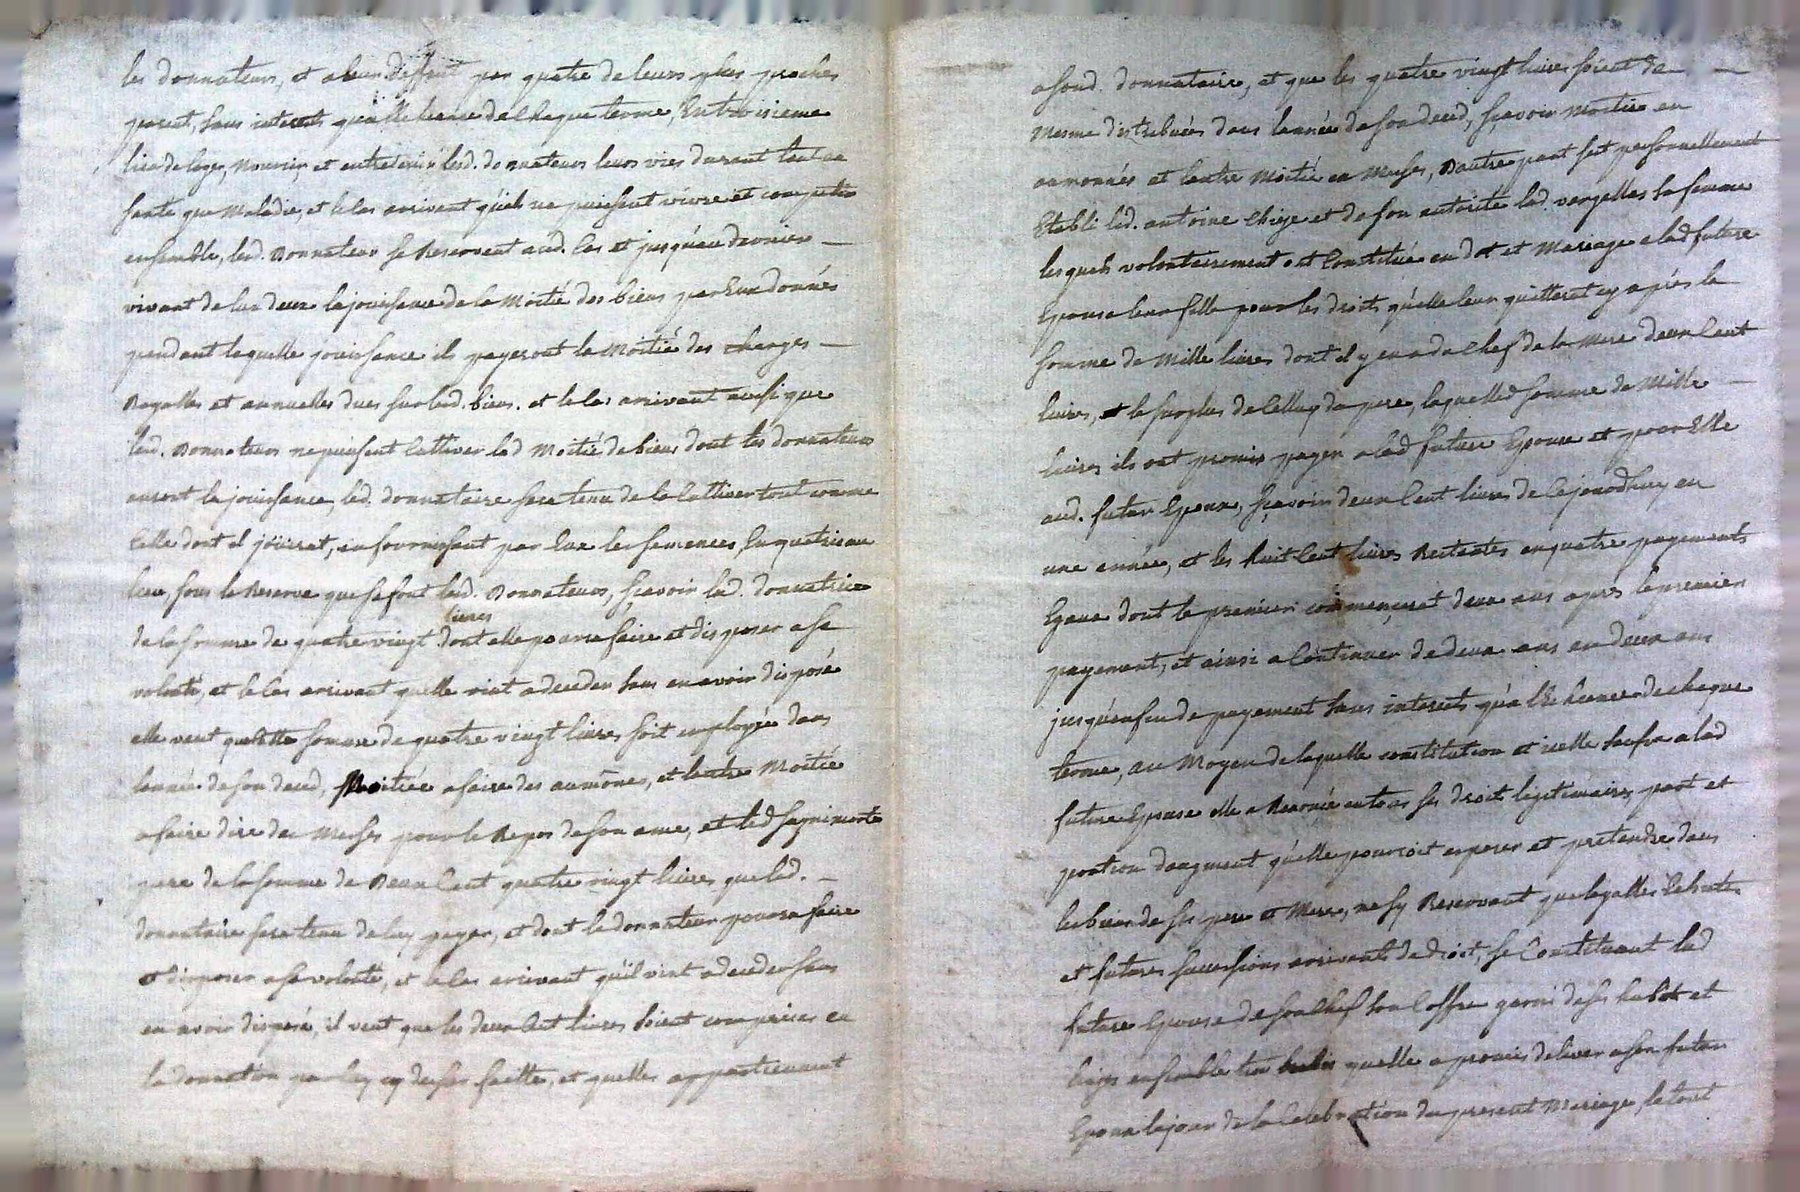 les donnateurs, et a leur deffaut par quatre de leurs plus proches
parent, sans interests qu'a l'Echeance de chaque terme, En troisieme
lieu de loger, nourrir, et entretenir lesd. donnateurs leurs vies durant tant en
santé que maladie, et le cas arrivant qu'ils ne puissent vivre et compatir
ensemble, lesd. Donnateurs se Reservent aud. cas et jusqu'au dernier
vivant de eux deux la jouissance de la Moitié des biens par Eux donnés
pendant laquelle jouissance ils payeront la Moitié des charges
Royalles et annuelles dues sur lesd. biens. et le cas arrivant aussi que
lesd. Donnateurs ne puissent Cultiver lad Moitié de biens dont les donnateurs
auront la jouissance, led. donnataire sera tenu de la Cultiver tout comme
Celle dont il jouirat, en fournissant par Eux les semences, En quatrieme
lieu, sous la Reserve que se font lesd. Donnateurs, sçavoir lad. donnatrice
de la somme de quatre vingt livres dont elle pourra faire et disposer a sa
volonté, et le cas arrivant qu'elle vint a deceder sans en avoir disposé
elle veut que lade somme de quatre vingt livres soit employée dans
l'année de son deced, Moitiée a faire des aumônes, et l'autre Moitié
a faire dire des Messes pour le Repos de son ame, et led
pere de la somme de Deux Cent quatre vingt livres que led.
donnataire sera tenu de luy payer, et dont le donnateur pourra faire
et disposer a sa volonté, et le cas arrivant qu'il vint a deceder sans
en avoir disposé, il veut que les deux Cent livres soient comprises en
la donnation par luy cy dessus faitte, et quelles appartiennent
a sond. donnataire, et que les quatre vingt livres soient de
mesme distribuées dans l'année de son deced, sçavoir Moitié en
aumonnes et l'autre Moitié en Messes, D'autre part sest personnellement
Etabli led. antoine et de son autorité lad. vergelles sa femme
lesquels volontairement ont Constitué en dot et Mariage a lad future
Epouse leur fille pour les droits qu'elle leur quitterat cy après la
somme de Mille livres dont il y en a du Chef de la Mere deux Cent
livres, et le surplus de Celluy du pere, laquelle somme de Mille
livres ils ont promis payer a lad future Epouse et pour Elle
aud. futur Epoux, sçavoir deux Cent livres de Cejourdhuy en
une année, et les huit Cent livres Restantes en quatre payements
Egaux dont le premier commencerat deux ans apres le premier
payement, et ainsi a Continuer de deux ans en deux ans
jusqu'en fin de payement sans interests qu'a l'Echeance de chaque
terme, au Moyen de laquelle constitution et icelle sauve a lad
future Epouse elle a Renoncé en tous ses droit legitimaires, part et
portion daugment qu'elle pourroit esperer et pretendre dans
les biens de ses pere et Mere, ne s'y Reservant que legalles Echutes
et futures successions arrivants de droit, se Constituant lad
future Epouse de son Chef son Coffre garni de ses habits et
linges ensemble quelle a promis delivrer a son futur
Epoux le jour de la Celebration du present Mariage, le tout